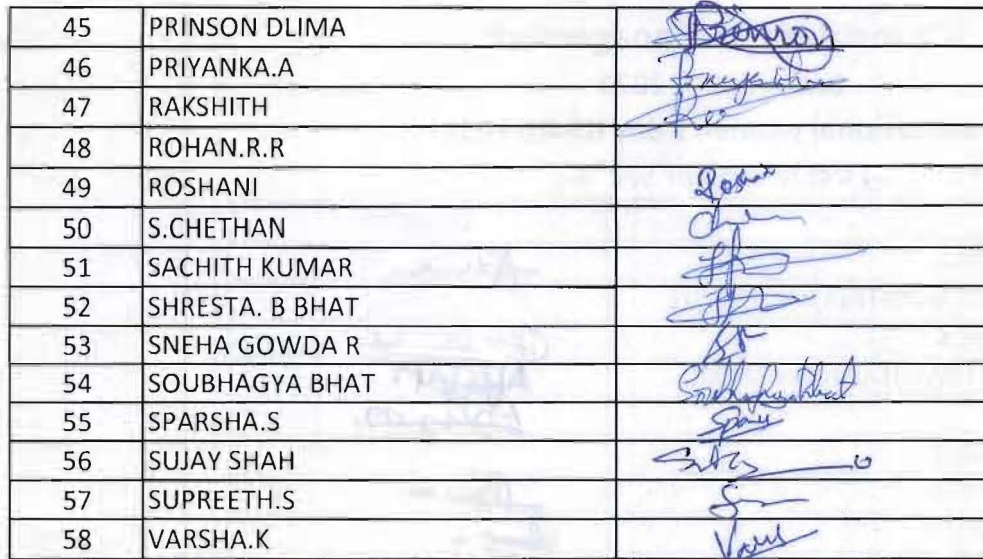 45 PRINSON DLIMA Prinson
46 PRIYANKA.A
47 RAKSHITH
48 ROHAN.R.R
49 ROSHANI Roshni
50 S.CHETHAN
51 SACHITH KUMAR
52 SHRESTA. B BHAT
53 SNEHA GOWDA R
54 SOUBHAGYA BHAT Soubhagya Bhat
55 SPARSHA.S
56 SUJAY SHAH
57 SUPREETH.S
58 VARSHA.K